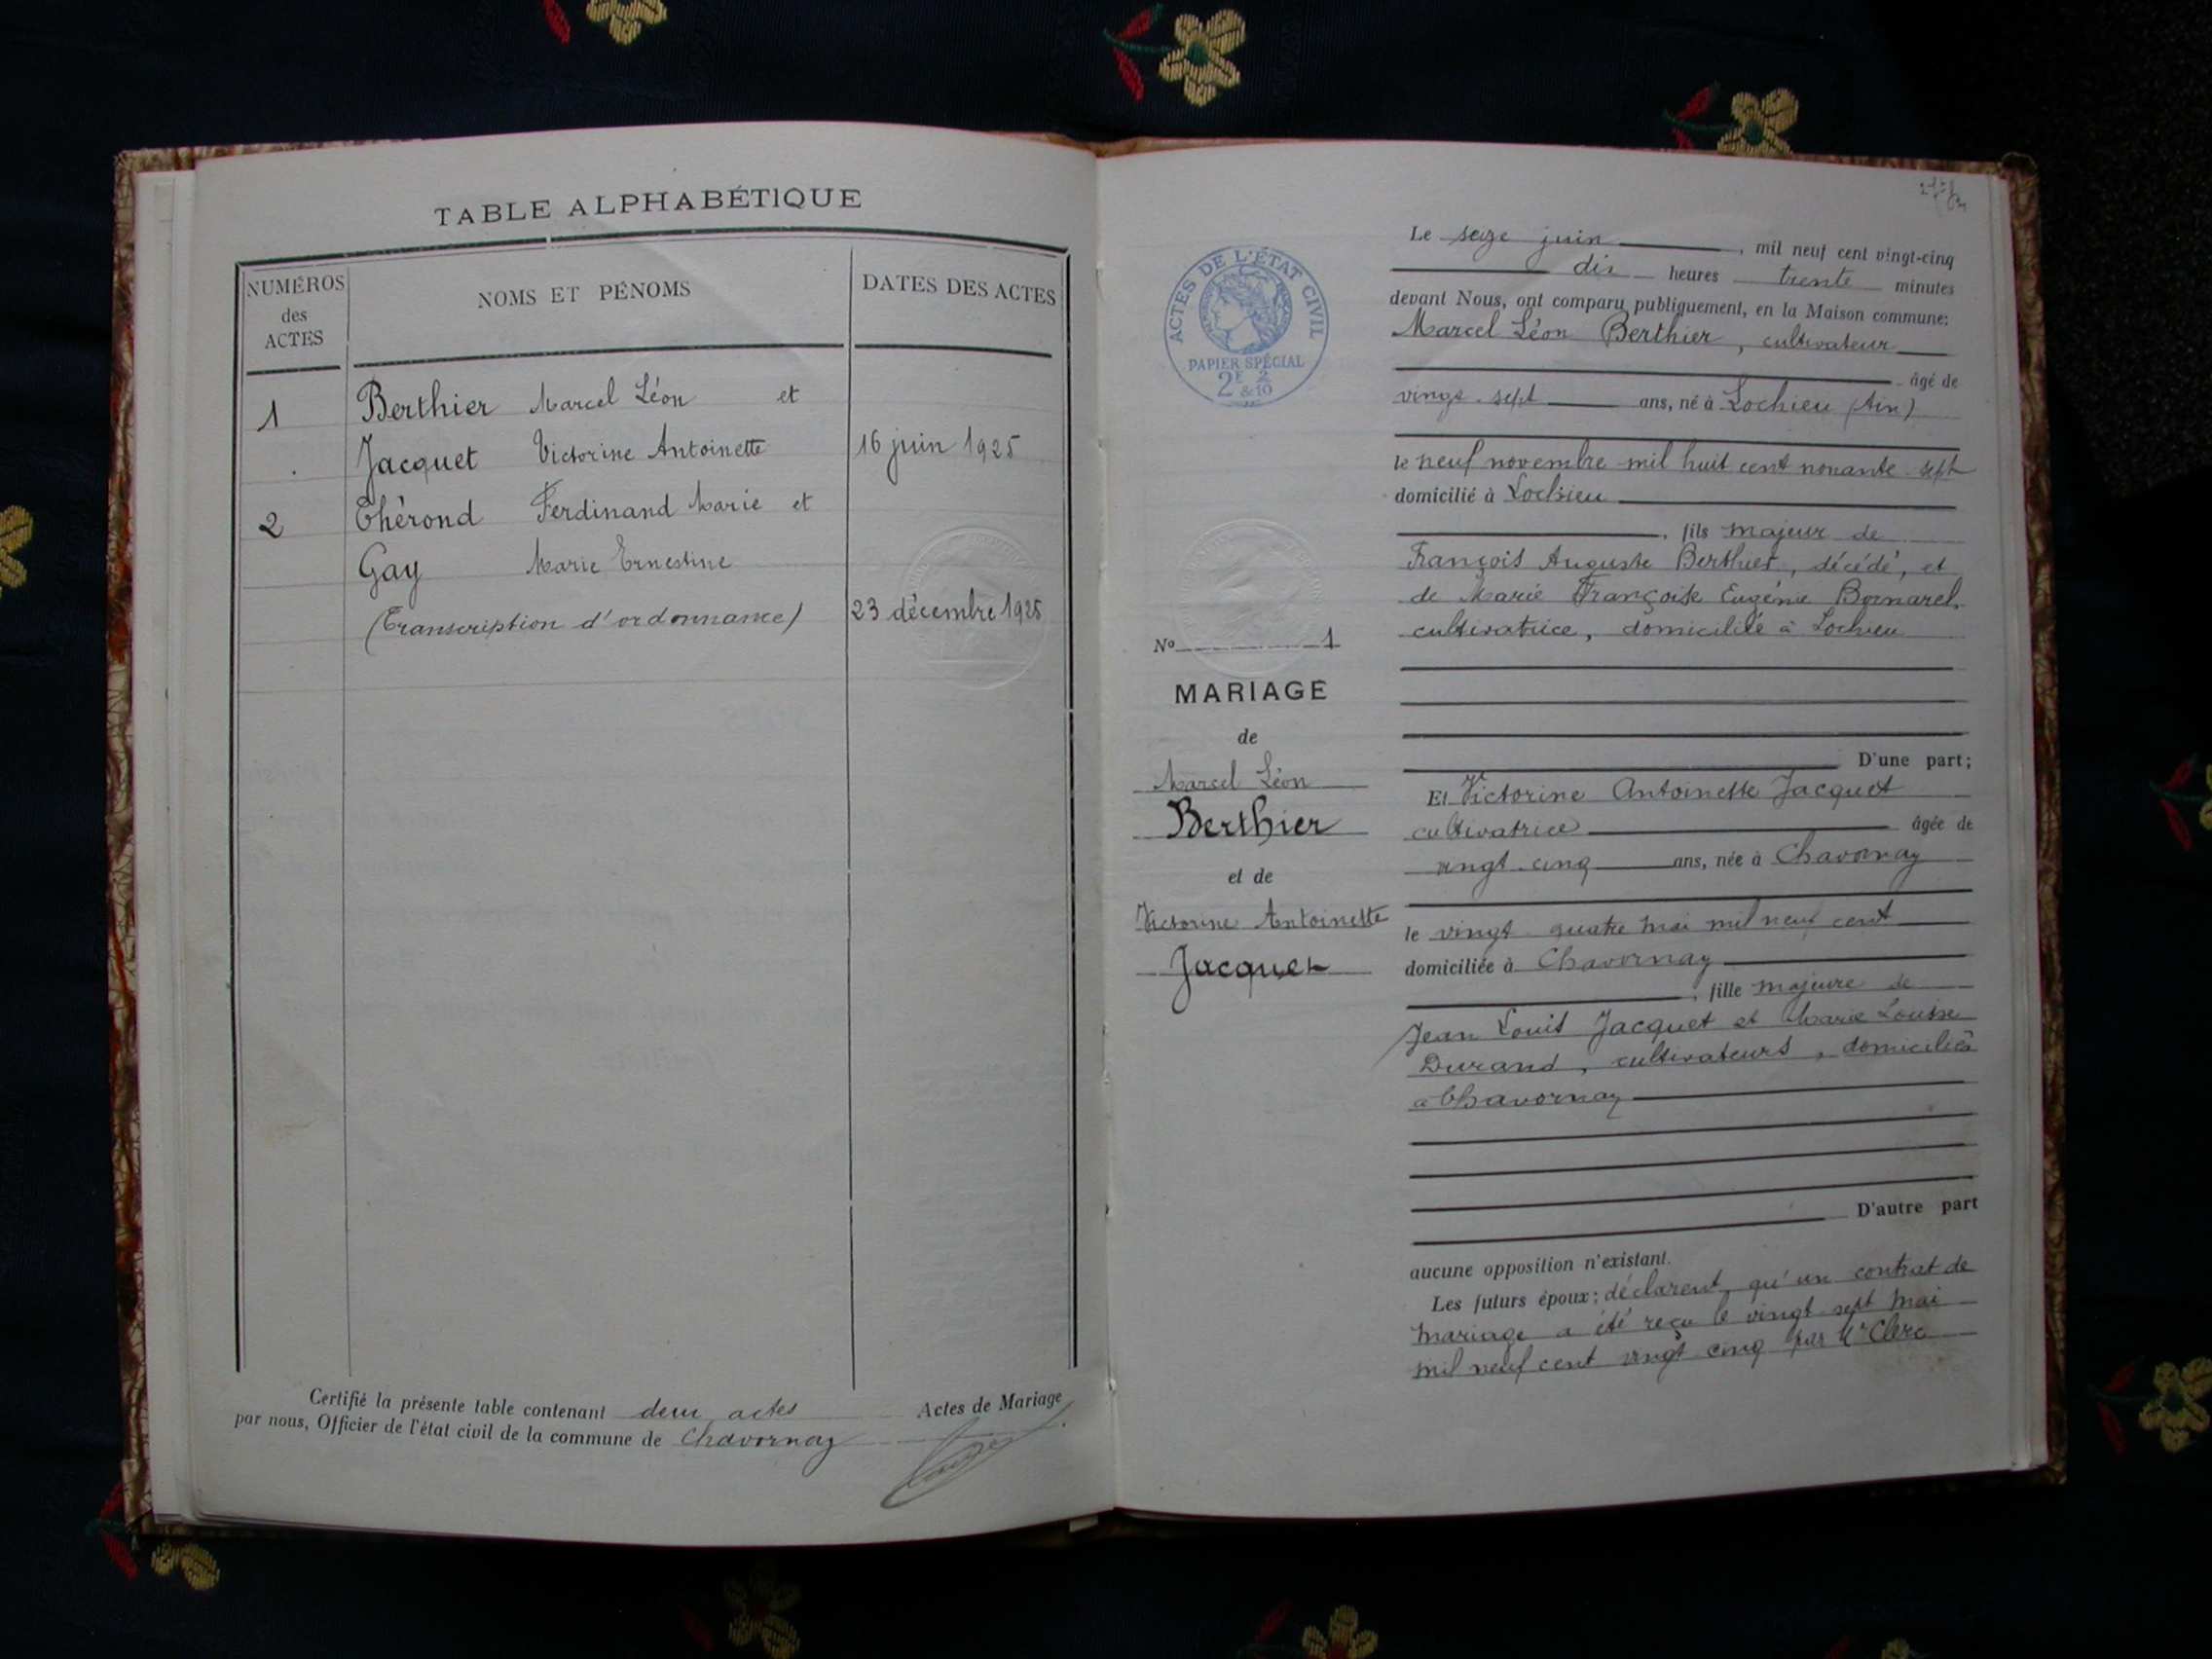 TABLE ALPHABÉTIQUE
NUMÉROS
des
ACTES
NOMS ET PÉNOMS
DATES DES ACTES
1
Berthier Marcel Léon et
Jacquet Victorine Antoinette
16 juin 1925
2
Thérond Ferdinand Marie et
Gay Marie Ernestine
(Transcription d'ordonnance)
23 décembre 1925
Certifié la présente table contenant deux actes Actes de Mariage
par nous, Officier de l'état civil de la commune de Chavornay
ACTES DE L'ÉTAT CIVIL
PAPIER SPÉCIAL
2F 2
&10
No 1
MARIAGE
de
Marcel Léon
Berthier
et de
Victorine Antoinette
Jacquet
Le seize juin, mil neuf cent vingt-cinq
dix heures trente minutes
devant Nous, ont comparu publiquement, en la Maison commune:
Marcel Léon Berthier, cultivateur
âgé de
vingt-sept ans, né à Lochieu (Ain)
le neuf novembre mil huit cent nonante-sept
domicilié à Lochieu
, fils majeur de
François Auguste Berthier, décédé, et
de Marie Françoise Eugénie Bornarel,
cultivatrice, domiciliée à Lochieu
D'une part;
Et Victorine Antoinette Jacquet
cultivatrice âgée de
vingt-cinq ans, née à Chavornay
le vingt-quatre mai mil neuf cent
domiciliée à Chavornay
, fille majeure de
Jean Louis Jacquet et Marie Louise
Durand, cultivateurs, domiciliés
à Chavornay
D'autre part
aucune opposition n'existant.
Les futurs époux; déclarent qu'un contrat de
mariage a été reçu le vingt-sept mai
mil neuf cent vingt cinq par Me Clerc